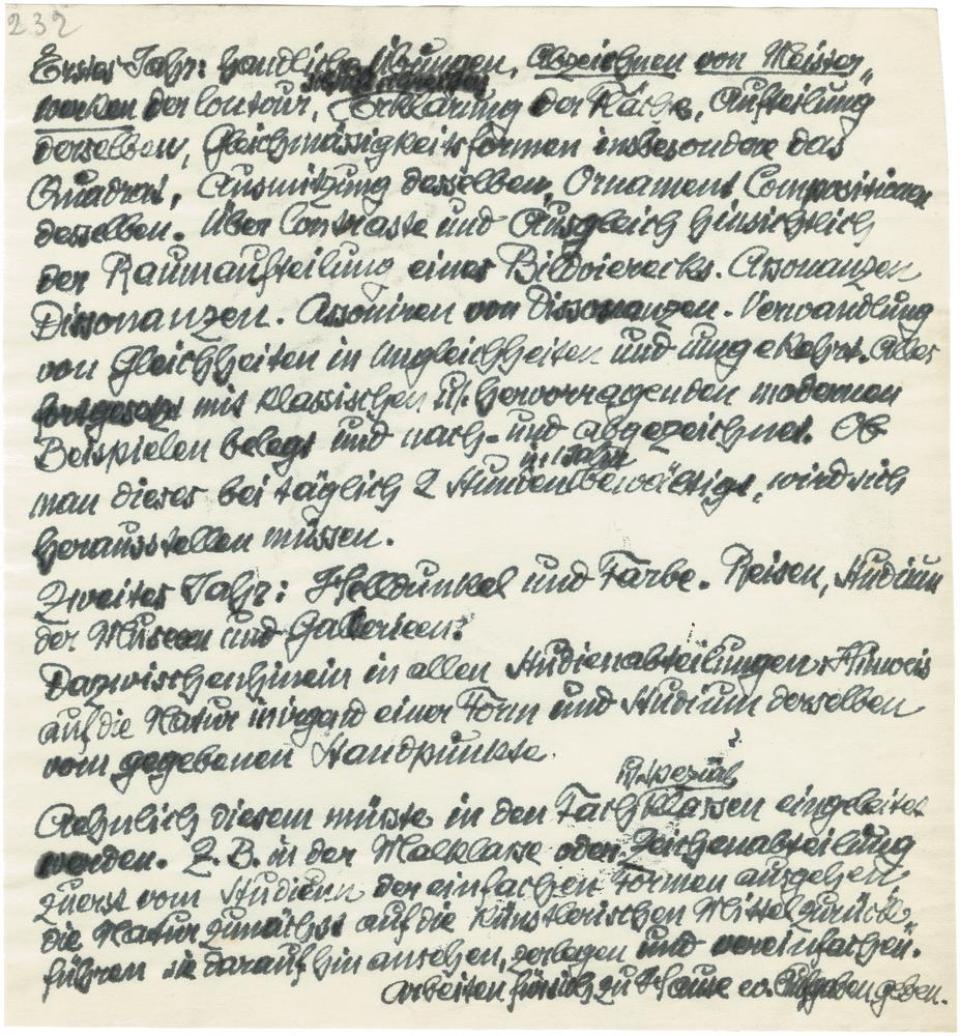 232
Erstes Jahr: handliche Übungen, Abzeichnen von Meister„
werken der Contour, Erklärung der Fläche, Aufteilung
derselben, Gleichmässigkeitsformen insbesondere das
Quadrat, Ausnützung desselben, Ornament Compositionen
desselben. Über Contraste und Ausgleich hinsichtlich
der Raumaufteilung eines Bildvierecks. Assonanzen
Dissonanzen. Assoniren von Dissonanzen. Verwandlung
von Gleichheiten in Ungleichheiten und umgekehrt. Alles
fortgesetzt mit klassischen u. hervorragenden modernen
Beispielen belegt und nach- und abgezeichnet. Ob
man dieses bei täglich 2 Stunden in 1 Jahr bewältigt, wird sich
herausstellen müssen.
Zweites Jahr: Helldunkel und Farbe. Reisen, Studium
der Museen und Gallerieen.
Dazwischenhinein in allen Studienabteilungen Hinweis
auf die Natur in irgend einer Form und Studium derselben
vom gegebenen Standpunkte.
Aehnlich diesem müsste in den Fach u. spezial klassen eingeleitet
werden. Z. B. in der Malklasse oder Zeichenabteilung
zuerst vom Studium der einfachen Formen ausgehen
die Natur zunächst auf die künstlerischen Mittel zurück„
führen sie daraufhin ansehen, zerlegen und vereinfachen.
Arbeiten für sich zu Hause ev. Aufgaben geben.